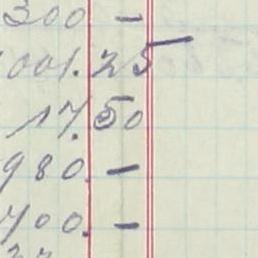 300 –
001.25
17.50
980. –
700. –